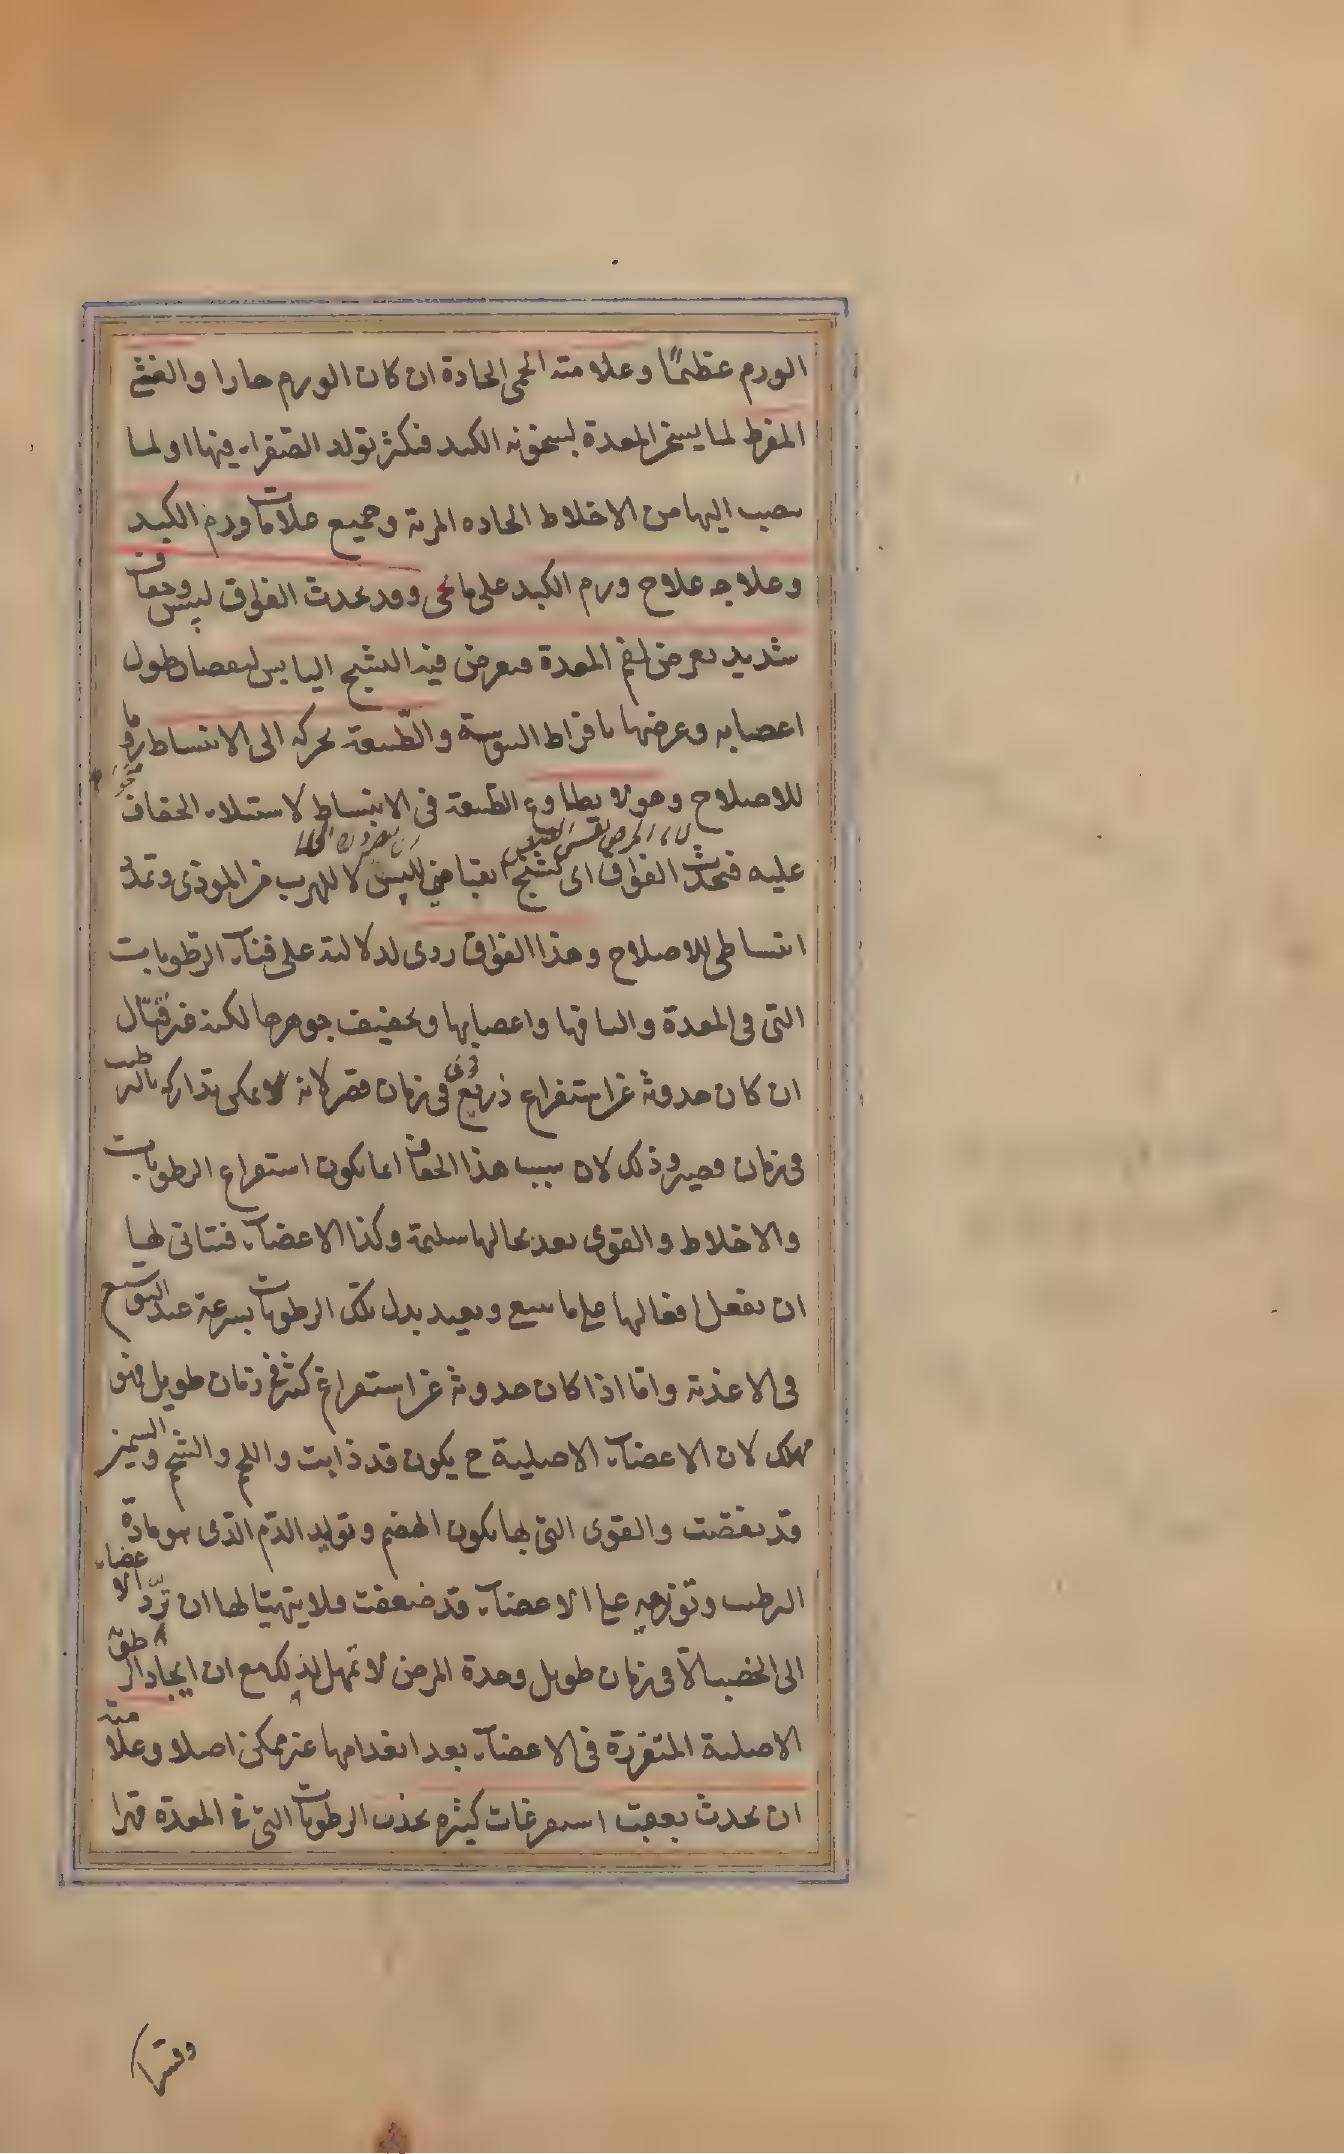 الورم عظيمًا وعلامته الحمى الحادة ان كان الورم حارا والغثى
المفرط لما يسخن المعدة لسخونه الكبد فيكثر تولد الصفراء فيها او لما
ينصب اليها من الاخلاط الحاده المرية وجميع علامات ورم الكبد
وعلاجه علاج ورم الكبد على ما يجى وقد يحدث الفواق ليبس وجفاف
شديد يعرض لفم المعدة فيعرض فيه التشنج اليابس لنقصان طول
اعصابه وعرضها بافراط اليبوسة والطبيعة تحركه الى الانبساط روما
للاصلاح وهو لا يطاوع الطبيعة فى الانبساط لاستيلاء الجفاف
عليه فيحدث الفواق اى تشنج انقباضى لليبس لا للهرب من الموذى وتمدد
انبساطى للاصلاح وهذا الفواق ردى لدلالته على فناء الرطوبات
التى فى المعدة واليافها واعصابها وتجفيف جوهرها لكنه غير قتال
ان كان حدوثه عن استفراغ ذريع قوى فى زمان قصير لانه يمكن تداركه بالترطيب
فى زمان قصير وذلك لان سبب هذا الجفاف انما يكون استفراغ الرطوبات
والاخلاط والقوى بعد بحالها سليمة وكذا الاعضاء فيتاتى لها
ان يفعل افعالها على ما ينبغى ويعيد بدل تلك الرطوبات بسرعة عند التوسع
فى الاغذية واما اذا كان حدوثه عن استفراغ كثير فى زمان طويل فهو
مهلك لان الاعضاء الاصلية ح يكون قد ذابت واللحم والشحم والسمين
قد نقصت والقوى التى بها يكون الهضم وتوليد الدم الذى هو مادة
الرطب وتوزيعه على الاعضاء قد ضعفت فلا يتهيا لها ان ترد الاعضاء
الى الخصب الا فى زمان طويل وحدة المرض لا تمهل لذلك مع ان ايجاد الرطوبة
الاصلية المتقررة فى الاعضاء بعد انعدامها غير ممكن اصلا وعلامته
ان يحدث بعقب استفرغات كثيره يجذب الرطوبات التى فى المعدة قهرا
وقسرا